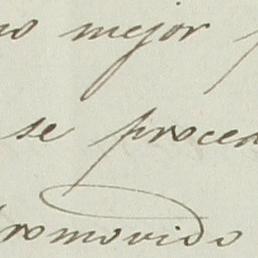 mejor
se proced
promovido